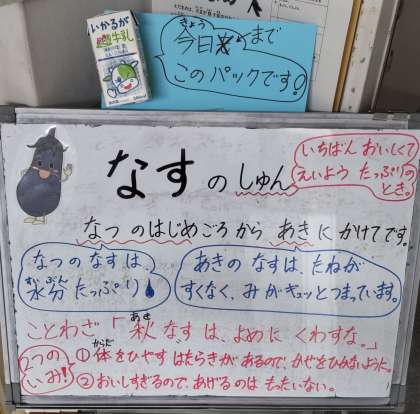 いかるが
牛乳
きょう
今日まで
このパックです!
なすのしゅん
いちばん おいしくて
えいよう たっぷりの
とき。
なつ のはじめごろから あきに かけてです。
なつの なすは、
すいぶん
水分 たっぷり
あきの なすは、たねが
すくなく、み がギュッとつまっています。
あき
ことわざ「秋なすは、よめに くわすな。」
2つの
いみ!
からだ
①体をひやす はたらきが あるので、かぜをひかないように。
②おいしすぎるので、あげるのは もったいない。